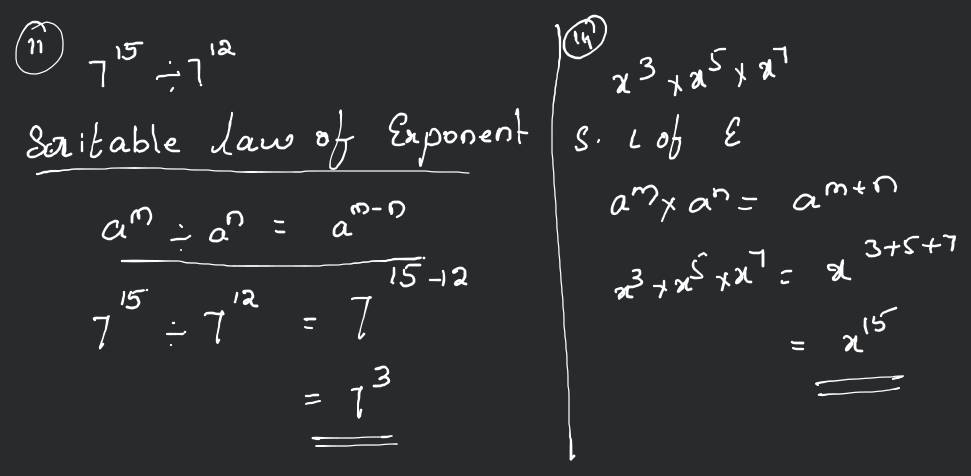 11
7^15 ÷ 7^12
Suitable law of Exponent
a^m ÷ a^n = a^(m-n)
7^15 ÷ 7^12 = 7^(15-12)
= 7^3
14
x^3 × x^5 × x^7
S. L of E
a^m × a^n = a^(m+n)
x^3 × x^5 × x^7 = x^(3+5+7)
= x^15